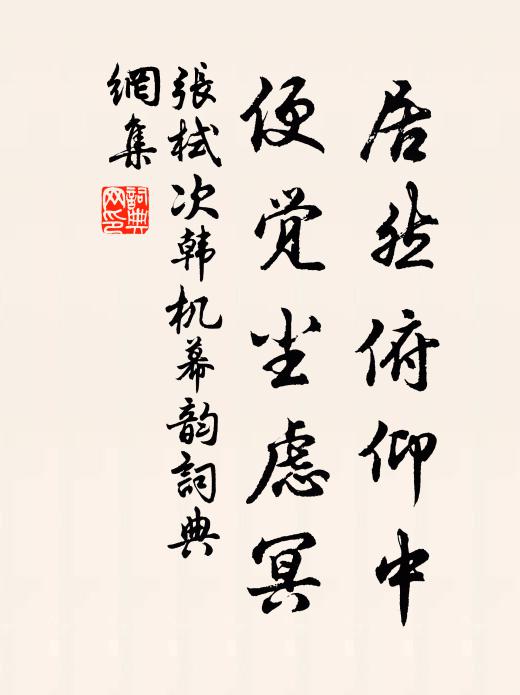 居然俯仰中
便觉尘虑冥
張栻次韩机幕韵詞典
網集
詞典網印